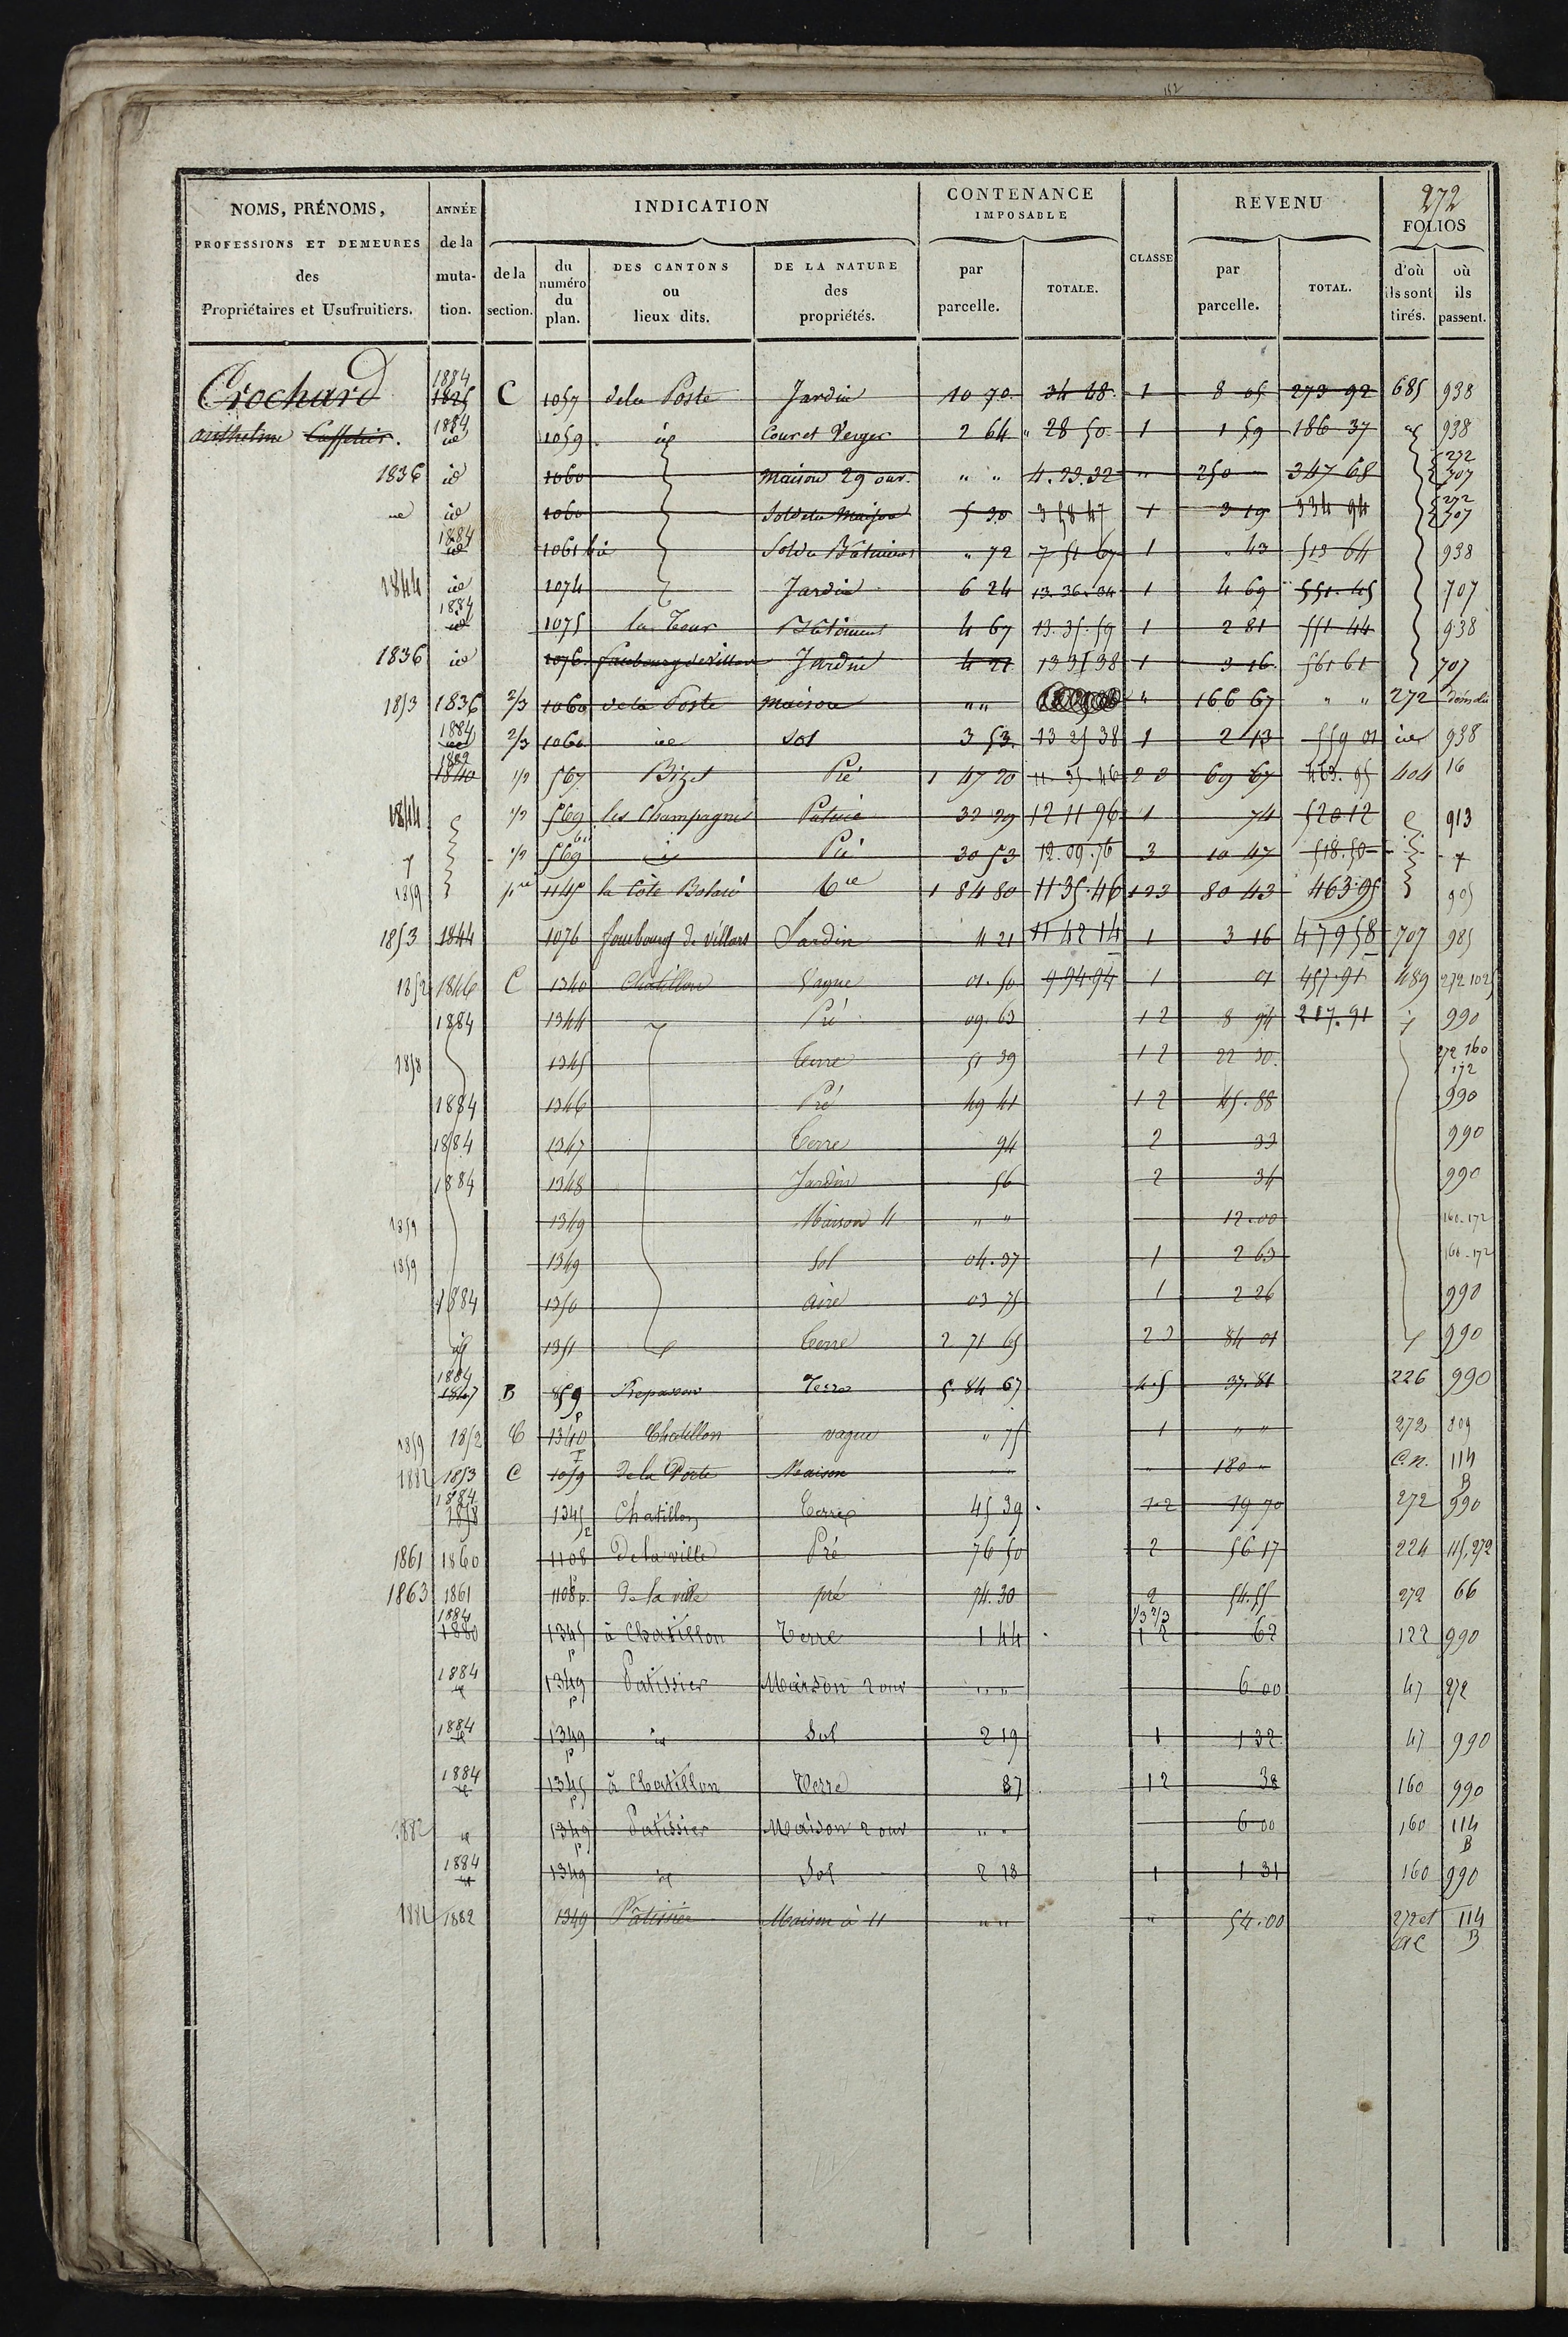 112
272
NOMS, PRÉNOMS, PROFESSIONS ET DEMEURES des Propriétaires et Usufruitiers. ANNÉE de la mutation. INDICATION de la section. du numéro du plan. DES CANTONS ou lieux dits. DE LA NATURE des propriétés. CONTENANCE IMPOSABLE par parcelle. TOTALE. CLASSE REVENU par parcelle. TOTAL. FOLIOS d'où ils sont tirés. où ils passent.
Crochard 1884 1825 C 1057 dela Poste Jardin 10 70 34 48 1 8 05 273 92 685 938
anthelme Caffetier. 1884 id 1059 id Cour et Verger 2 64 28 50 1 1 59 186 37 id 938
1836 id 1060 Maison 29 ouv. " " 4.23.32 " 250 347 68 272 707
id id 1060 Sol de la Maison 5 30 3 58 47 1 3 19 334 94 272 707
1884 id 1061 bis Sol du Bâtiment " 72 7 51 67 1 " 43 513 64 938
1844 id 1074 Jardin 6 24 13.36.04 1 4 69 551.45 707
1884 id 1075 la Tour Bâtiment 4 67 13.35.59 1 2 81 551 44 938
1836 id 1076 faubourg de Villars Jardin 4 21 13 35 38 1 3 16 561 61 707
1853 1836 2/3 1060 de la Poste Maison " " " 166 67 " " 272 démolie
1884 id 2/3 1060 id Sol 3 53 13 25 38 1 2 13 559 01 id 938
1840 1/2 567 Bizet Pré 1 47 20 11.35.46 2 3 69 67 463.95 404 16
1844 1/2 569 les Champagnes Pature 32 29 12 11 96 1 74 520 12 913
1/2 569 bis id Pré 30 53 12.09.76 3 10 47 518.50
1859 pie 1145 la Côte Terre 1 84 80 11 35.46 1 2 3 80 43 463.95 905
1853 1844 1076 faubourg de villars Jardin 4 21 11 42 14 1 3 16 479 58 707 985
1852 1846 C 1340 Chatillon Vague 01.50 9 94.94 1 01 457.91 489 272 1025
1884 1344 Pré 09.63 1 2 8 94 217.91 990
1858 1345 Terre 51 39 1 2 22 30 272 160 172
1884 1346 Pré 49 41 1 2 45.88 990
1884 1347 Terre 94 2 33 990
1884 1348 Jardin 56 2 34 990
1859 1349 Maison 11 " " 12.00 160-172
1859 1349 Sol 04.37 1 2 63 160-172
1884 1350 aire 03 75 1 2 26 990
id 1351 Terre 2 71 65 2 3 84 01 990
1884 1847 B 859 Terre 5.84 67 4.5 37.81 226 990
1859 1852 C 1340 p Chatillon vague " 75 1 " " 272 809
1882 1853 C 1059 de la Poste Maison " 180 " C.N. 114 B
1884 1858 1345 Chatillon Terre 45 39 1-2 19 70 272 990
1861 1860 1108 De la ville Pré 76 50 2 56 17 224 115,272
1863 1861 1108 p. De la ville pré 74.30 2 54.55 272 66
1884 1880 1345 p à Chatillon Terre 1 44 1/3 2/3 1 2 62 122 990
1884 id 1349 p Patissier Maison 2 ouv " " 6 00 47 272
1884 id 1349 p id Sol 2 19 1 1 32 47 990
1884 id 1345 p à Chatillon Terre 87 1 2 38 160 990
1882 id 1349 p Patissier Maison 2 ouv " " 6 00 160 114 B
1884 id 1349 id Sol 2 18 1 1 31 160 990
1884 1882 1349 Pâtissier Maison à 11 " " " 54.00 272 et 114 B